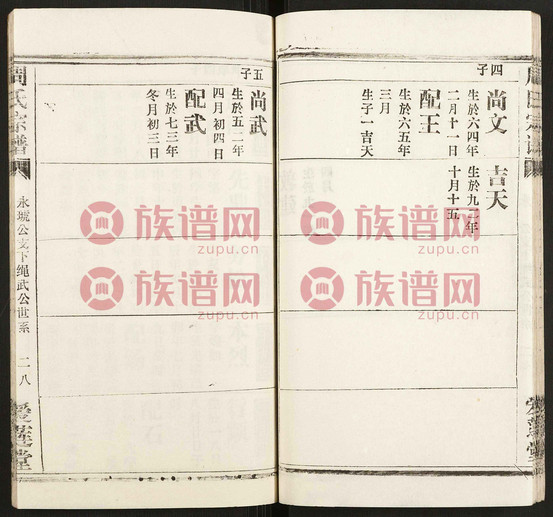 四子
尚文
生於六四年
二月十一日
配王
生於六五年
三月
生子一吉天
吉天
生於九二年
十月十五
五子
尚武
生於五二年
四月初四日
配武
生於七三年
冬月初三日
周氏宗譜
永城公支下绳武公世系
二八
愛蓮堂
族谱网
zupu.cn
族谱网
zupu.cn
族谱网
zupu.cn
族谱网
zupu.cn